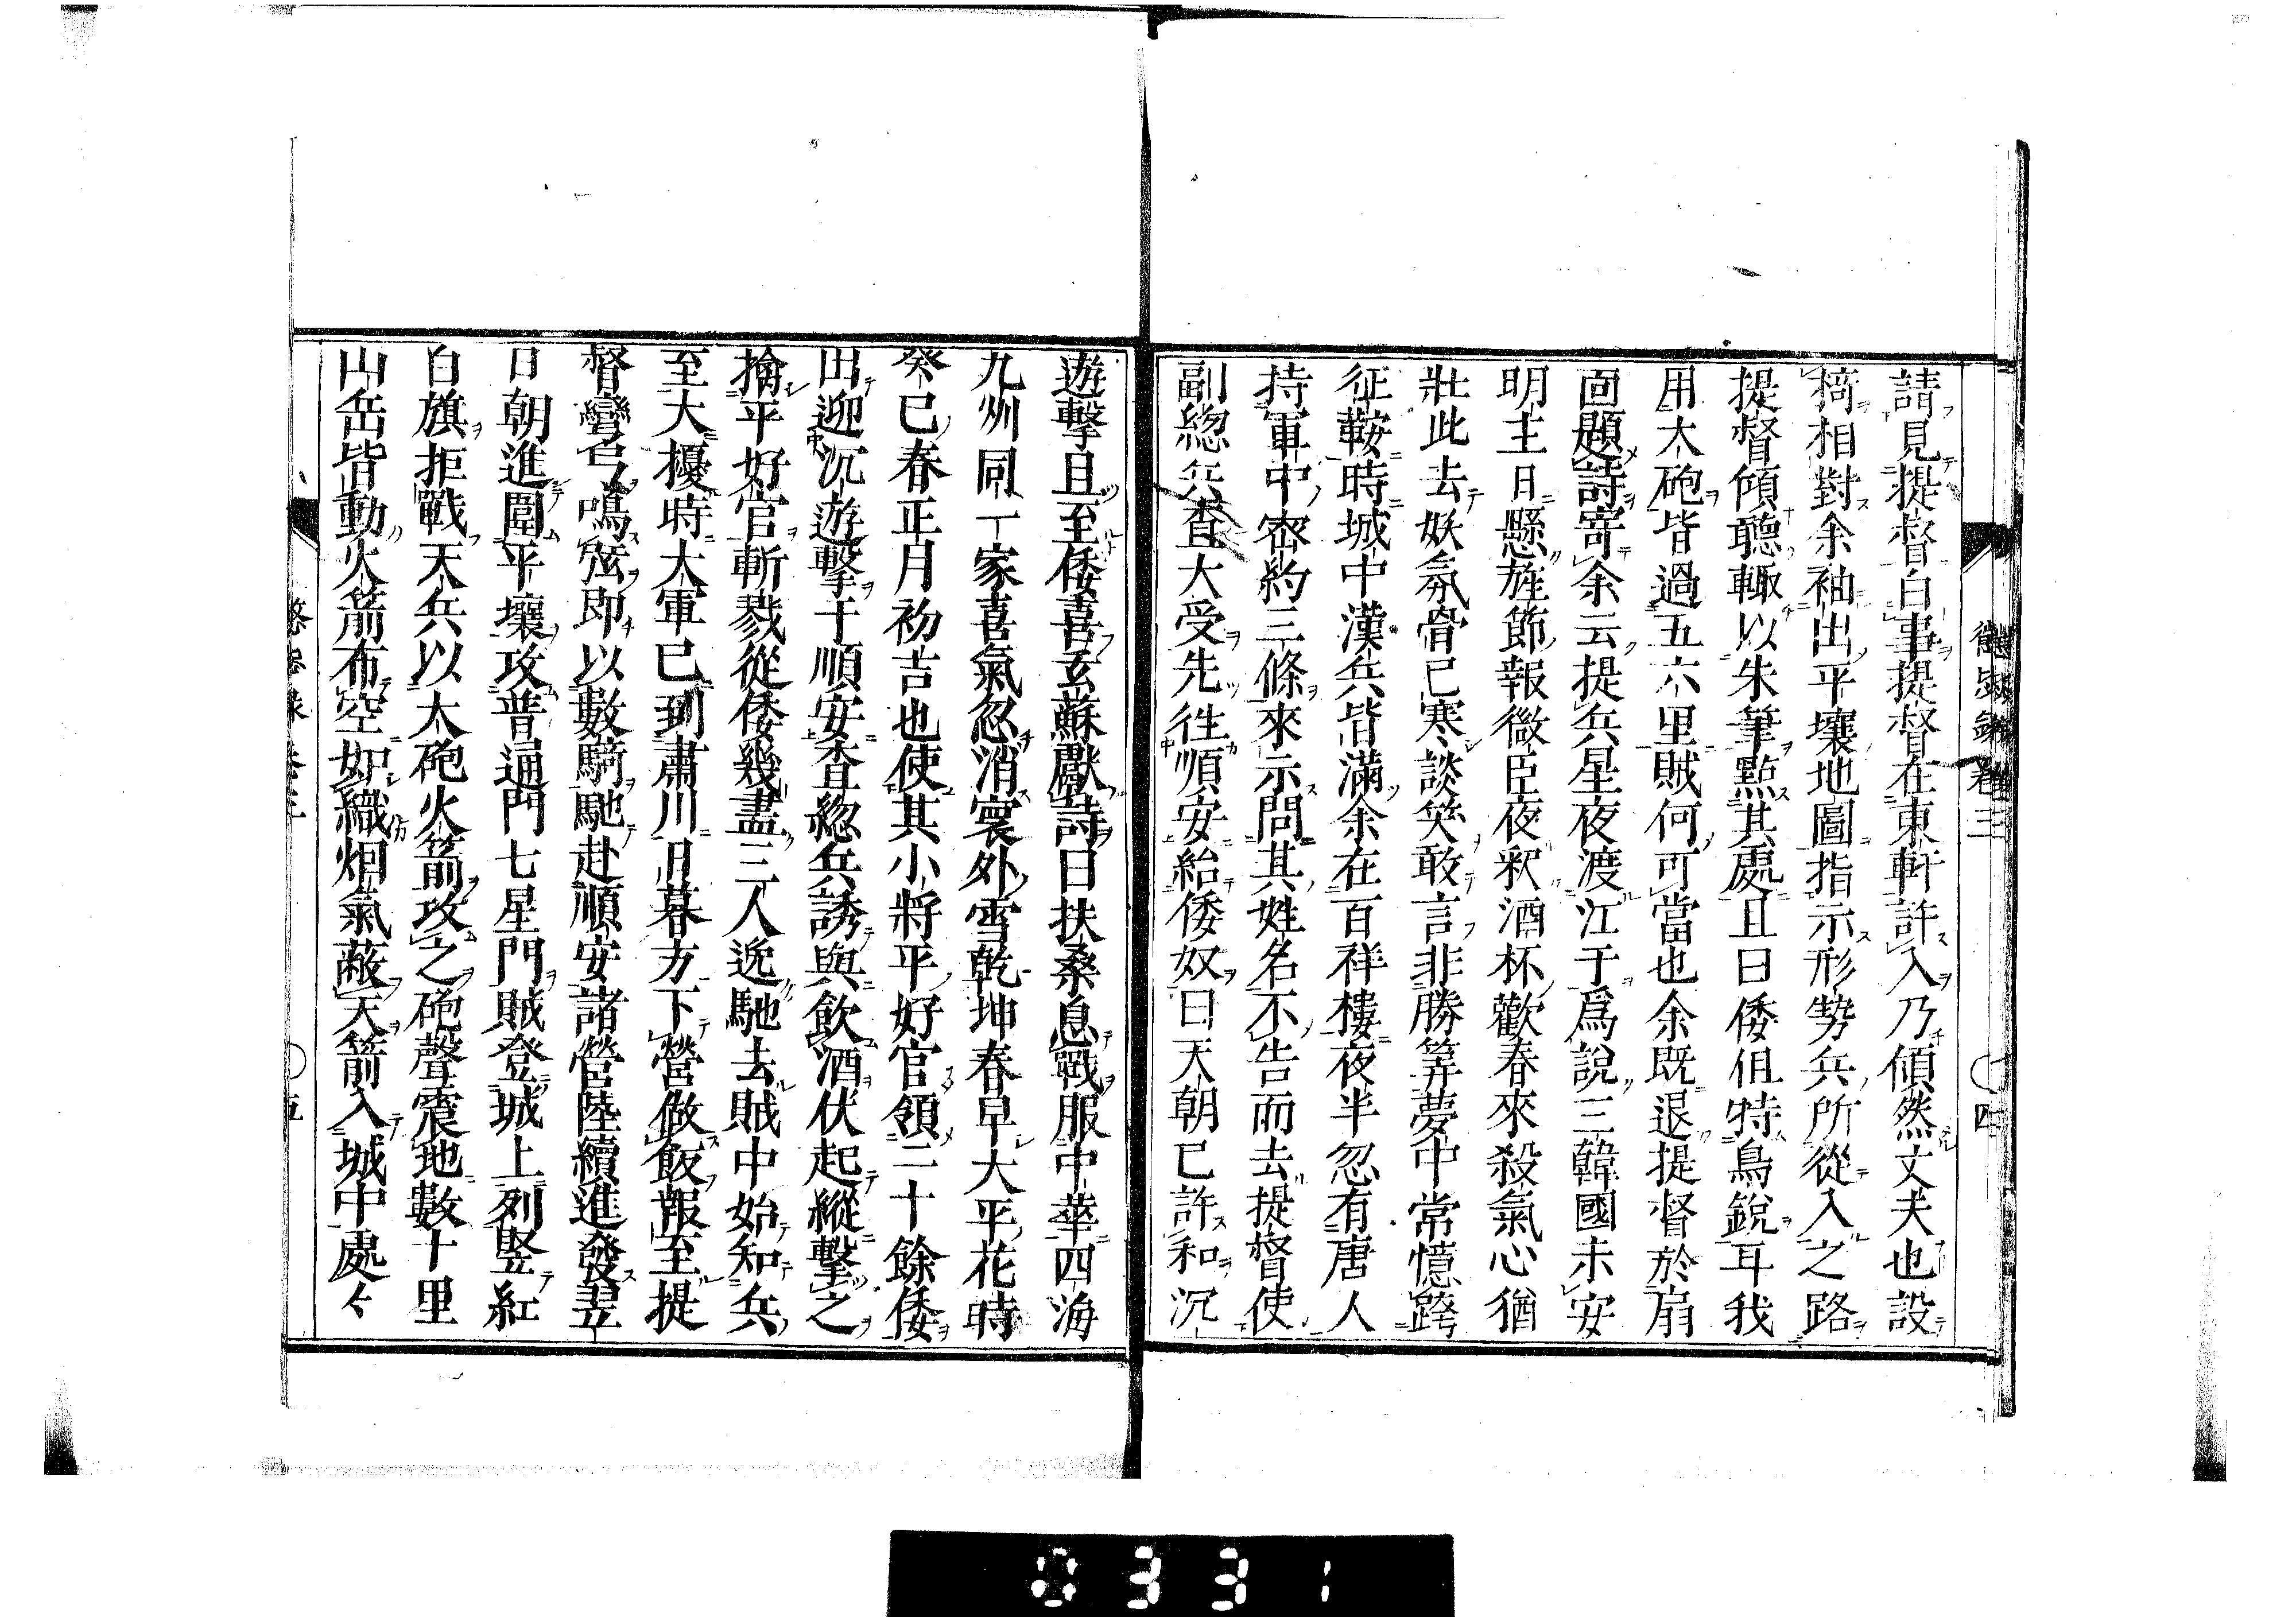 懲毖錄卷三
四
請見提督白事提督在東軒許入乃傾然丈夫也設
椅相對余袖出平壤地圖指示形勢兵所從入之路
提督傾聽輙以朱筆點其處且曰倭但恃鳥銳耳我
用大砲皆過五六里賊何可當也余既退提督於扇
面題詩寄余云提兵星夜渡江干爲說三韓國未安
明主日懸旌節報微臣夜釈酒杯歡春來殺氣心猶
壯此去妖氛骨已寒談笑敢言非勝筭夢中常憶跨
征鞍時城中漢兵皆滿余在百祥樓夜半忽有唐人
持軍中密約三條來示問其姓名不告而去提督使
副総兵查大受先徃順安紿倭奴曰天朝已許和沉
遊擊且至倭喜玄蘇獻詩曰扶桑息戰服中華四海
九州同一家喜氣忽消寰外雪乾坤春早大平花時
癸巳春正月初吉也使其小將平好官領二十餘倭
出迎沉遊擊于順安查総兵誘與飲酒伏起縱擊之
擒平好官斬戮從倭幾盡三人逸馳去賊中始知兵
至大擾時大軍已到肅川日暮方下營做飯報至提
督彎弓鳴弦即以數騎馳赴順安諸營陸續進發翌
日朝進圍平壤攻普通門七星門賊登城上列竪紅
白旗拒戰天兵以大砲火箭攻之砲聲震地數十里
山岳皆動火箭布空如織烟氣蔽天箭入城中處々
五
0331